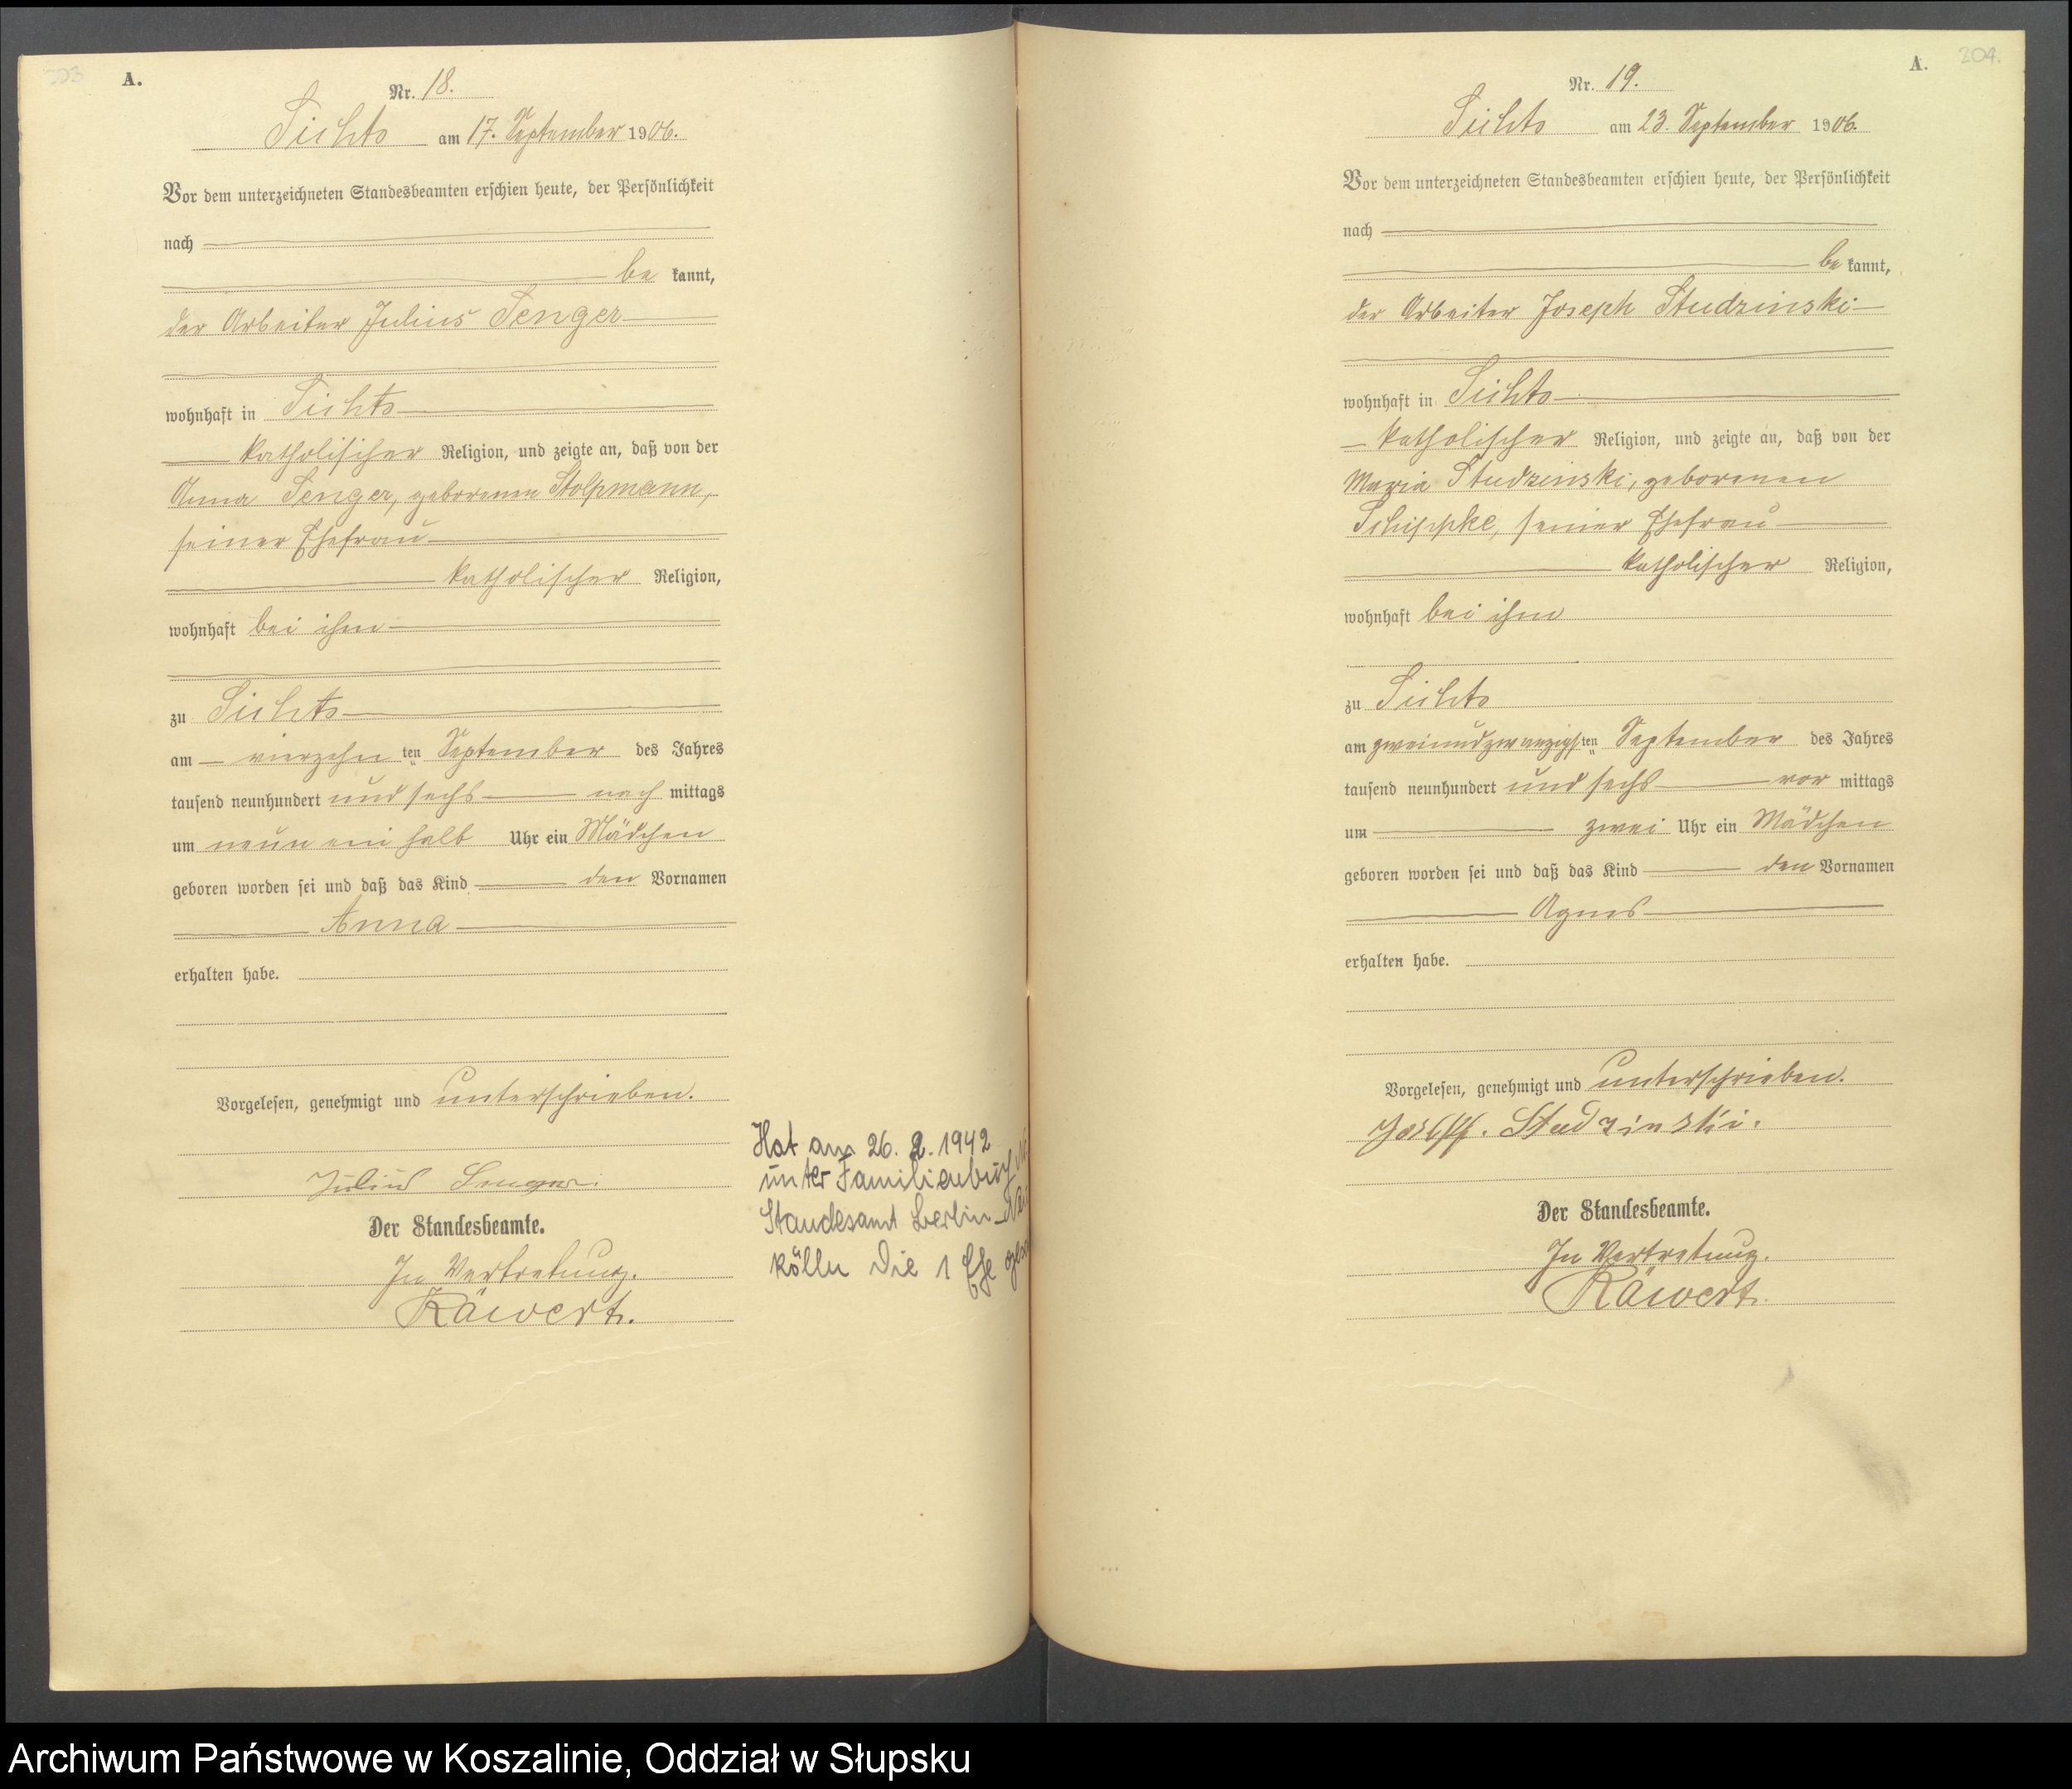 203
A.
Nr. 18.
Sichts am 17. September 1906.
Vor dem unterzeichneten Standesbeamten erschien heute, der Persönlichkeit
nach
be kannt,
der Arbeiter Julius Senger
wohnhaft in Sichts
katholischer Religion, und zeigte an, daß von der
Anna Senger, geborenen Stolpmann,
seiner Ehefrau
katholischer Religion,
wohnhaft bei ihm
zu Sichts
am vierzehn ten September des Jahres
tausend neunhundert und sechs nach mittags
um neun ein halb Uhr ein Mädchen
geboren worden sei und daß das Kind den Vornamen
Anna
erhalten habe.
Vorgelesen, genehmigt und unterschrieben.
Julius Senger.
Der Standesbeamte.
In Vertretung.
Räwert.
Hat am 26. 2. 1942
unter Familienbuch
Standesamt Berlin-
kölln die 1 Ehe
A. 204.
Nr. 19.
Sichts am 23. September 1906.
Vor dem unterzeichneten Standesbeamten erschien heute, der Persönlichkeit
nach
be kannt,
der Arbeiter Joseph Studzinski
wohnhaft in Sichts
katholischer Religion, und zeigte an, daß von der
Maria Studzinski, geborenen
Schippke, seiner Ehefrau
katholischer Religion,
wohnhaft bei ihm
zu Sichts
am zweiundzwanzigsten September des Jahres
tausend neunhundert und sechs vor mittags
um zwei Uhr ein Mädchen
geboren worden sei und daß das Kind den Vornamen
Agnes
erhalten habe.
Vorgelesen, genehmigt und unterschrieben.
Joseph. Studzinski.
Der Standesbeamte.
In Vertretung.
Räwert.
Archiwum Państwowe w Koszalinie, Oddział w Słupsku